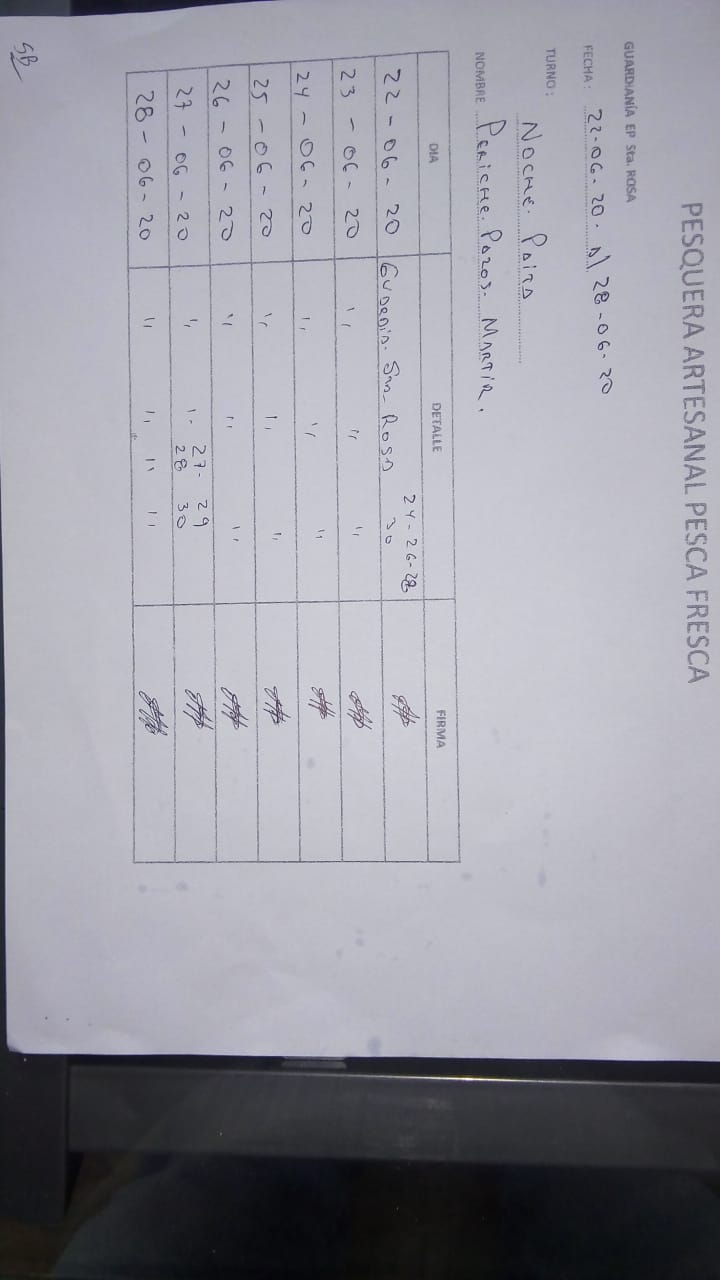 PESQUERA ARTESANAL PESCA FRESCA
GUARDIANÍA EP Sta. ROSA
FECHA: 22-06-20. Al 28-06-20
TURNO: Noche. Paita
NOMBRE Periche. Pazos. Martir.
DIA DETALLE FIRMA
22-06-20 Guardia. Sta. Rosa 24-26-28
30
23-06-20 " " "
24-06-20 " " "
25-06-20 " " "
26-06-20 " " "
27-06-20 " " 27- 29
28 30
28-06-20 " " " "